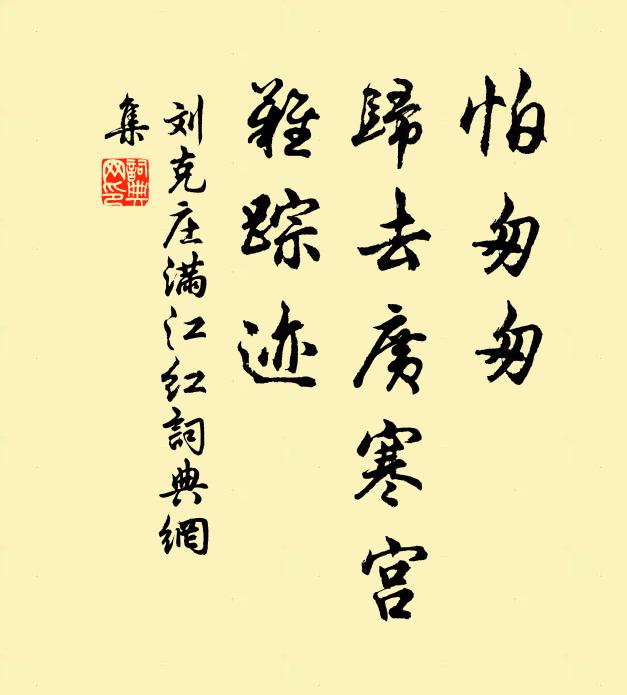 怕匆匆
歸去廣寒宮
難踪迹
刘克庄满江红詞典網
集
詞典網印